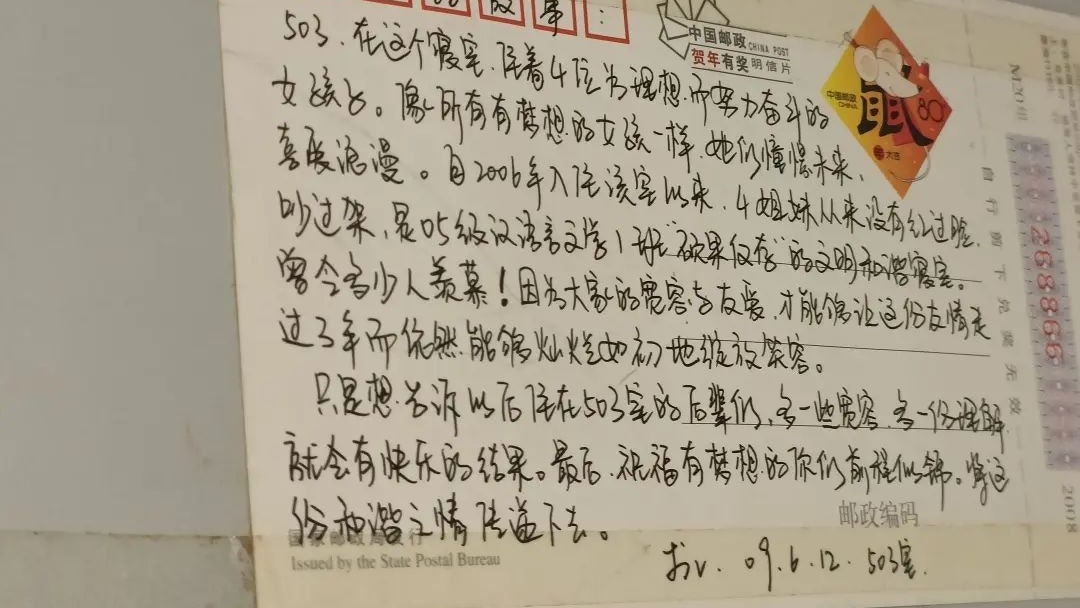 故事:
503.在这个寝室,住着4位为理想而努力奋斗的
女孩子。像所有有梦想的女孩一样,她们憧憬未来,
喜爱浪漫。自2006年入住该室以来,4姐妹从来没有红过脸,
吵过架,是05级汉语言文学1班"硕果仅存"的文明和谐寝室。
曾令多少人羡慕!因为大家的宽容与友爱,才能够让这份友情走
过3年而依然能够灿烂如初地绽放笑容。
只是想告诉以后住在503室的后辈们,多一些宽容,多一份理解
就会有快乐的结果。最后,祝福有梦想的你们前程似锦。将这
份和谐之情传递下去。
09.6.12. 503室.
中国邮政 CHINA POST
贺年有奖 明信片
中国邮政
CHINA
80
大吉
邮政编码
国家邮政局发行
Issued by the State Postal Bureau
268866
自行剪下兑奖无效
2008